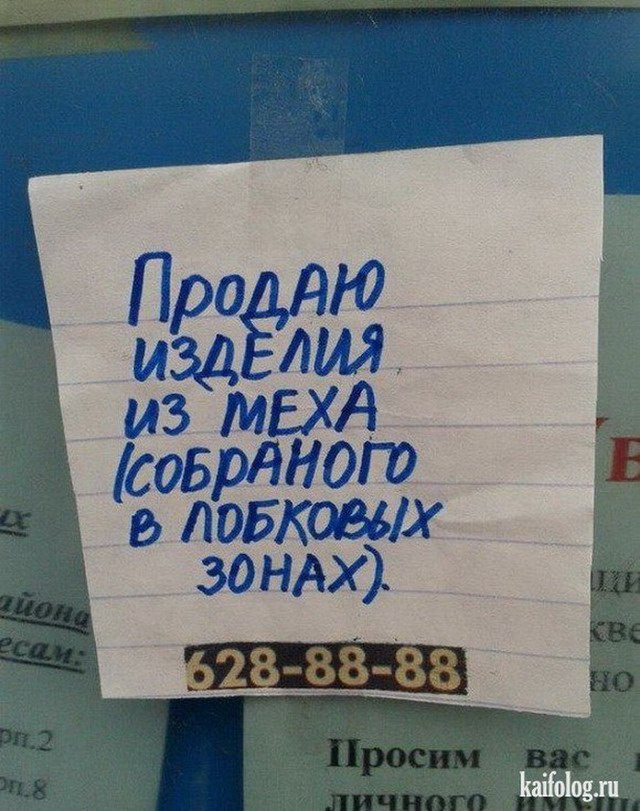 Продаю
изделия
из меха
(собраного
в лобковых
зонах).
628-88-88
их
айона
есам:
рп.2
рп.8
В
но
Просим вас
личного
kaifolog.ru